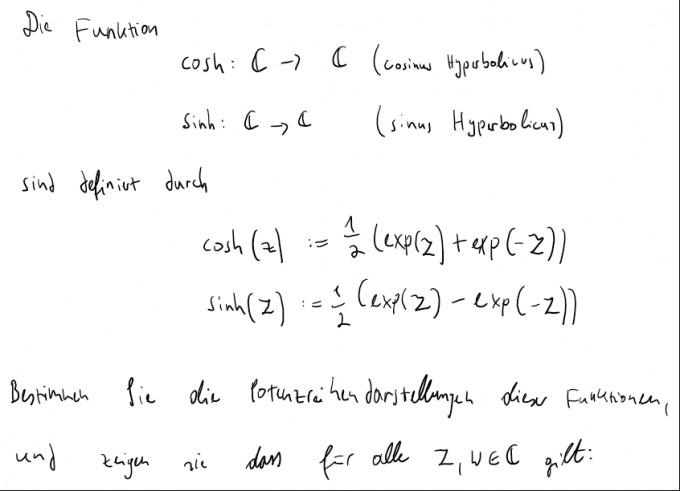 Die Funktion
cosh: ℂ → ℂ (cosinus Hyperbolicus)
sinh: ℂ → ℂ (sinus Hyperbolicus)
sind definiert durch
cosh(z) := 1/2 (exp(z) + exp(-z))
sinh(z) := 1/2 (exp(z) - exp(-z))
Bestimmen Sie die Potenzreihendarstellungen dieser Funktionen,
und zeigen sie dass für alle z, w ∈ ℂ gilt: